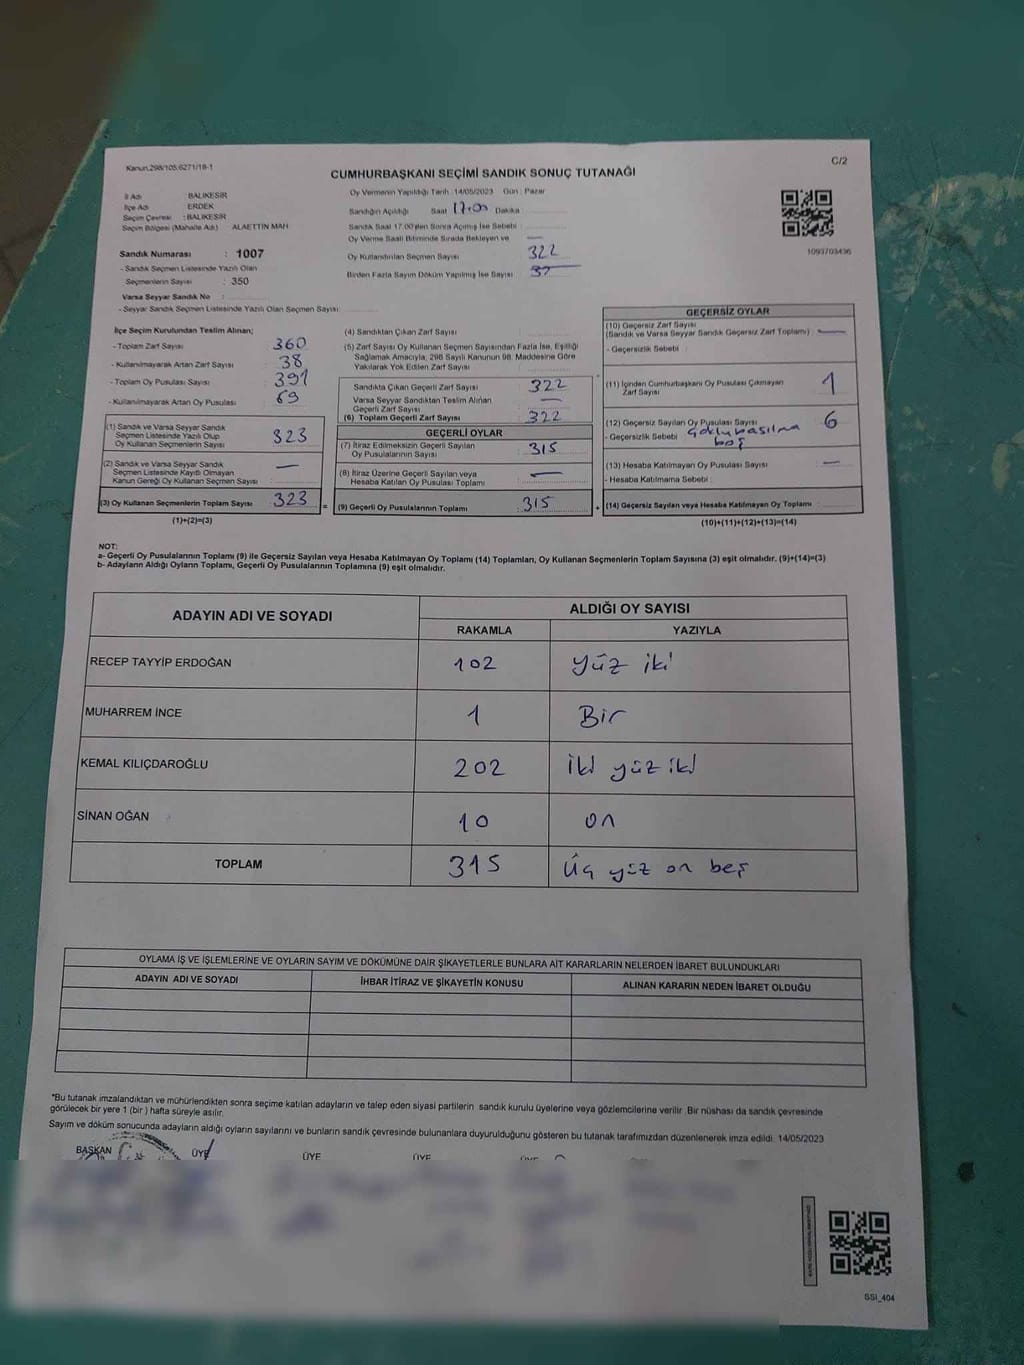 Kanun,298/105,6271/18-1
C/2
CUMHURBAŞKANI SEÇİMİ SANDIK SONUÇ TUTANAĞI
İl Adı : BALIKESİR
İlçe Adı : ERDEK
Seçim Çevresi : BALIKESİR
Seçim Bölgesi (Mahalle Adı) ALAETTİN MAH
Sandık Numarası : 1007
- Sandık Seçmen Listesinde Yazılı Olan
Seçmenlerin Sayısı : 350
Varsa Seyyar Sandık No :
- Seyyar Sandık Seçmen Listesinde Yazılı Olan Seçmen Sayısı:
Oy Vermenin Yapıldığı Tarih :14/05/2023 Gün : Pazar
Sandığın Açıldığı Saat 17:00 Dakika
Sandık Saat 17:00'den Sonra Açılmış İse Sebebi :
Oy Verme Saati Bitiminde Sırada Bekleyen ve —
Oy Kullandırılan Seçmen Sayısı 322
Birden Fazla Sayım Döküm Yapılmış İse Sayısı :
1093703436
İlçe Seçim Kurulundan Teslim Alınan;
- Toplam Zarf Sayısı : 360
- Kullanılmayarak Artan Zarf Sayısı : 38
- Toplam Oy Pusulası Sayısı : 391
- Kullanılmayarak Artan Oy Pusulası : 69
(1) Sandık ve Varsa Seyyar Sandık
Seçmen Listesinde Yazılı Olup
Oy Kullanan Seçmenlerin Sayısı : 323
(2) Sandık ve Varsa Seyyar Sandık
Seçmen Listesinde Kayıtlı Olmayan
Kanun Gereği Oy Kullanan Seçmen Sayısı : —
(3) Oy Kullanan Seçmenlerin Toplam Sayısı : 323
(1)+(2)=(3)
(4) Sandıktan Çıkan Zarf Sayısı :
(5) Zarf Sayısı Oy Kullanan Seçmen Sayısından Fazla İse, Eşitliği
Sağlamak Amacıyla, 298 Sayılı Kanunun 98. Maddesine Göre
Yakılarak Yok Edilen Zarf Sayısı :
Sandıkta Çıkan Geçerli Zarf Sayısı : 322
Varsa Seyyar Sandıktan Teslim Alınan
Geçerli Zarf Sayısı : —
(6) Toplam Geçerli Zarf Sayısı : 322
GEÇERLİ OYLAR
(7) İtiraz Edilmeksizin Geçerli Sayılan
Oy Pusulalarının Sayısı : 315
(8) İtiraz Üzerine Geçerli Sayılan veya
Hesaba Katılan Oy Pusulası Toplamı : —
(9) Geçerli Oy Pusulalarının Toplamı : 315
GEÇERSİZ OYLAR
(10) Geçersiz Zarf Sayısı
(Sandık ve Varsa Seyyar Sandık Geçersiz Zarf Toplamı) : —
- Geçersizlik Sebebi :
(11) İçinden Cumhurbaşkanı Oy Pusulası Çıkmayan
Zarf Sayısı : 1
(12) Geçersiz Sayılan Oy Pusulası Sayısı : 6
- Geçersizlik Sebebi : basılma
boş
(13) Hesaba Katılmayan Oy Pusulası Sayısı : —
- Hesaba Katılmama Sebebi :
(14) Geçersiz Sayılan veya Hesaba Katılmayan Oy Toplamı :
(10)+(11)+(12)+(13)=(14)
NOT:
a- Geçerli Oy Pusulalarının Toplamı (9) ile Geçersiz Sayılan veya Hesaba Katılmayan Oy Toplamı (14) Toplamları, Oy Kullanan Seçmenlerin Toplam Sayısına (3) eşit olmalıdır. (9)+(14)=(3)
b- Adayların Aldığı Oyların Toplamı, Geçerli Oy Pusulalarının Toplamına (9) eşit olmalıdır.
ADAYIN ADI VE SOYADI ALDIĞI OY SAYISI
RAKAMLA YAZIYLA
RECEP TAYYİP ERDOĞAN 102 Yüz iki
MUHARREM İNCE 1 Bir
KEMAL KILIÇDAROĞLU 202 İki yüz iki
SİNAN OĞAN 10 on
TOPLAM 315 Üç yüz on beş
OYLAMA İŞ VE İŞLEMLERİNE VE OYLARIN SAYIM VE DÖKÜMÜNE DAİR ŞİKAYETLERLE BUNLARA AİT KARARLARIN NELERDEN İBARET BULUNDUKLARI
ADAYIN ADI VE SOYADI İHBAR İTİRAZ VE ŞİKAYETİN KONUSU ALINAN KARARIN NEDEN İBARET OLDUĞU
*Bu tutanak imzalandıktan ve mühürlendikten sonra seçime katılan adayların ve talep eden siyasi partilerin sandık kurulu üyelerine veya gözlemcilerine verilir. Bir nüshası da sandık çevresinde
görülecek bir yere 1 (bir ) hafta süreyle asılır.
Sayım ve döküm sonucunda adayların aldığı oyların sayılarını ve bunların sandık çevresinde bulunanlara duyurulduğunu gösteren bu tutanak tarafımızdan düzenlenerek imza edildi. 14/05/2023
BAŞKAN ÜYE ÜYE ÜYE
SSI_404